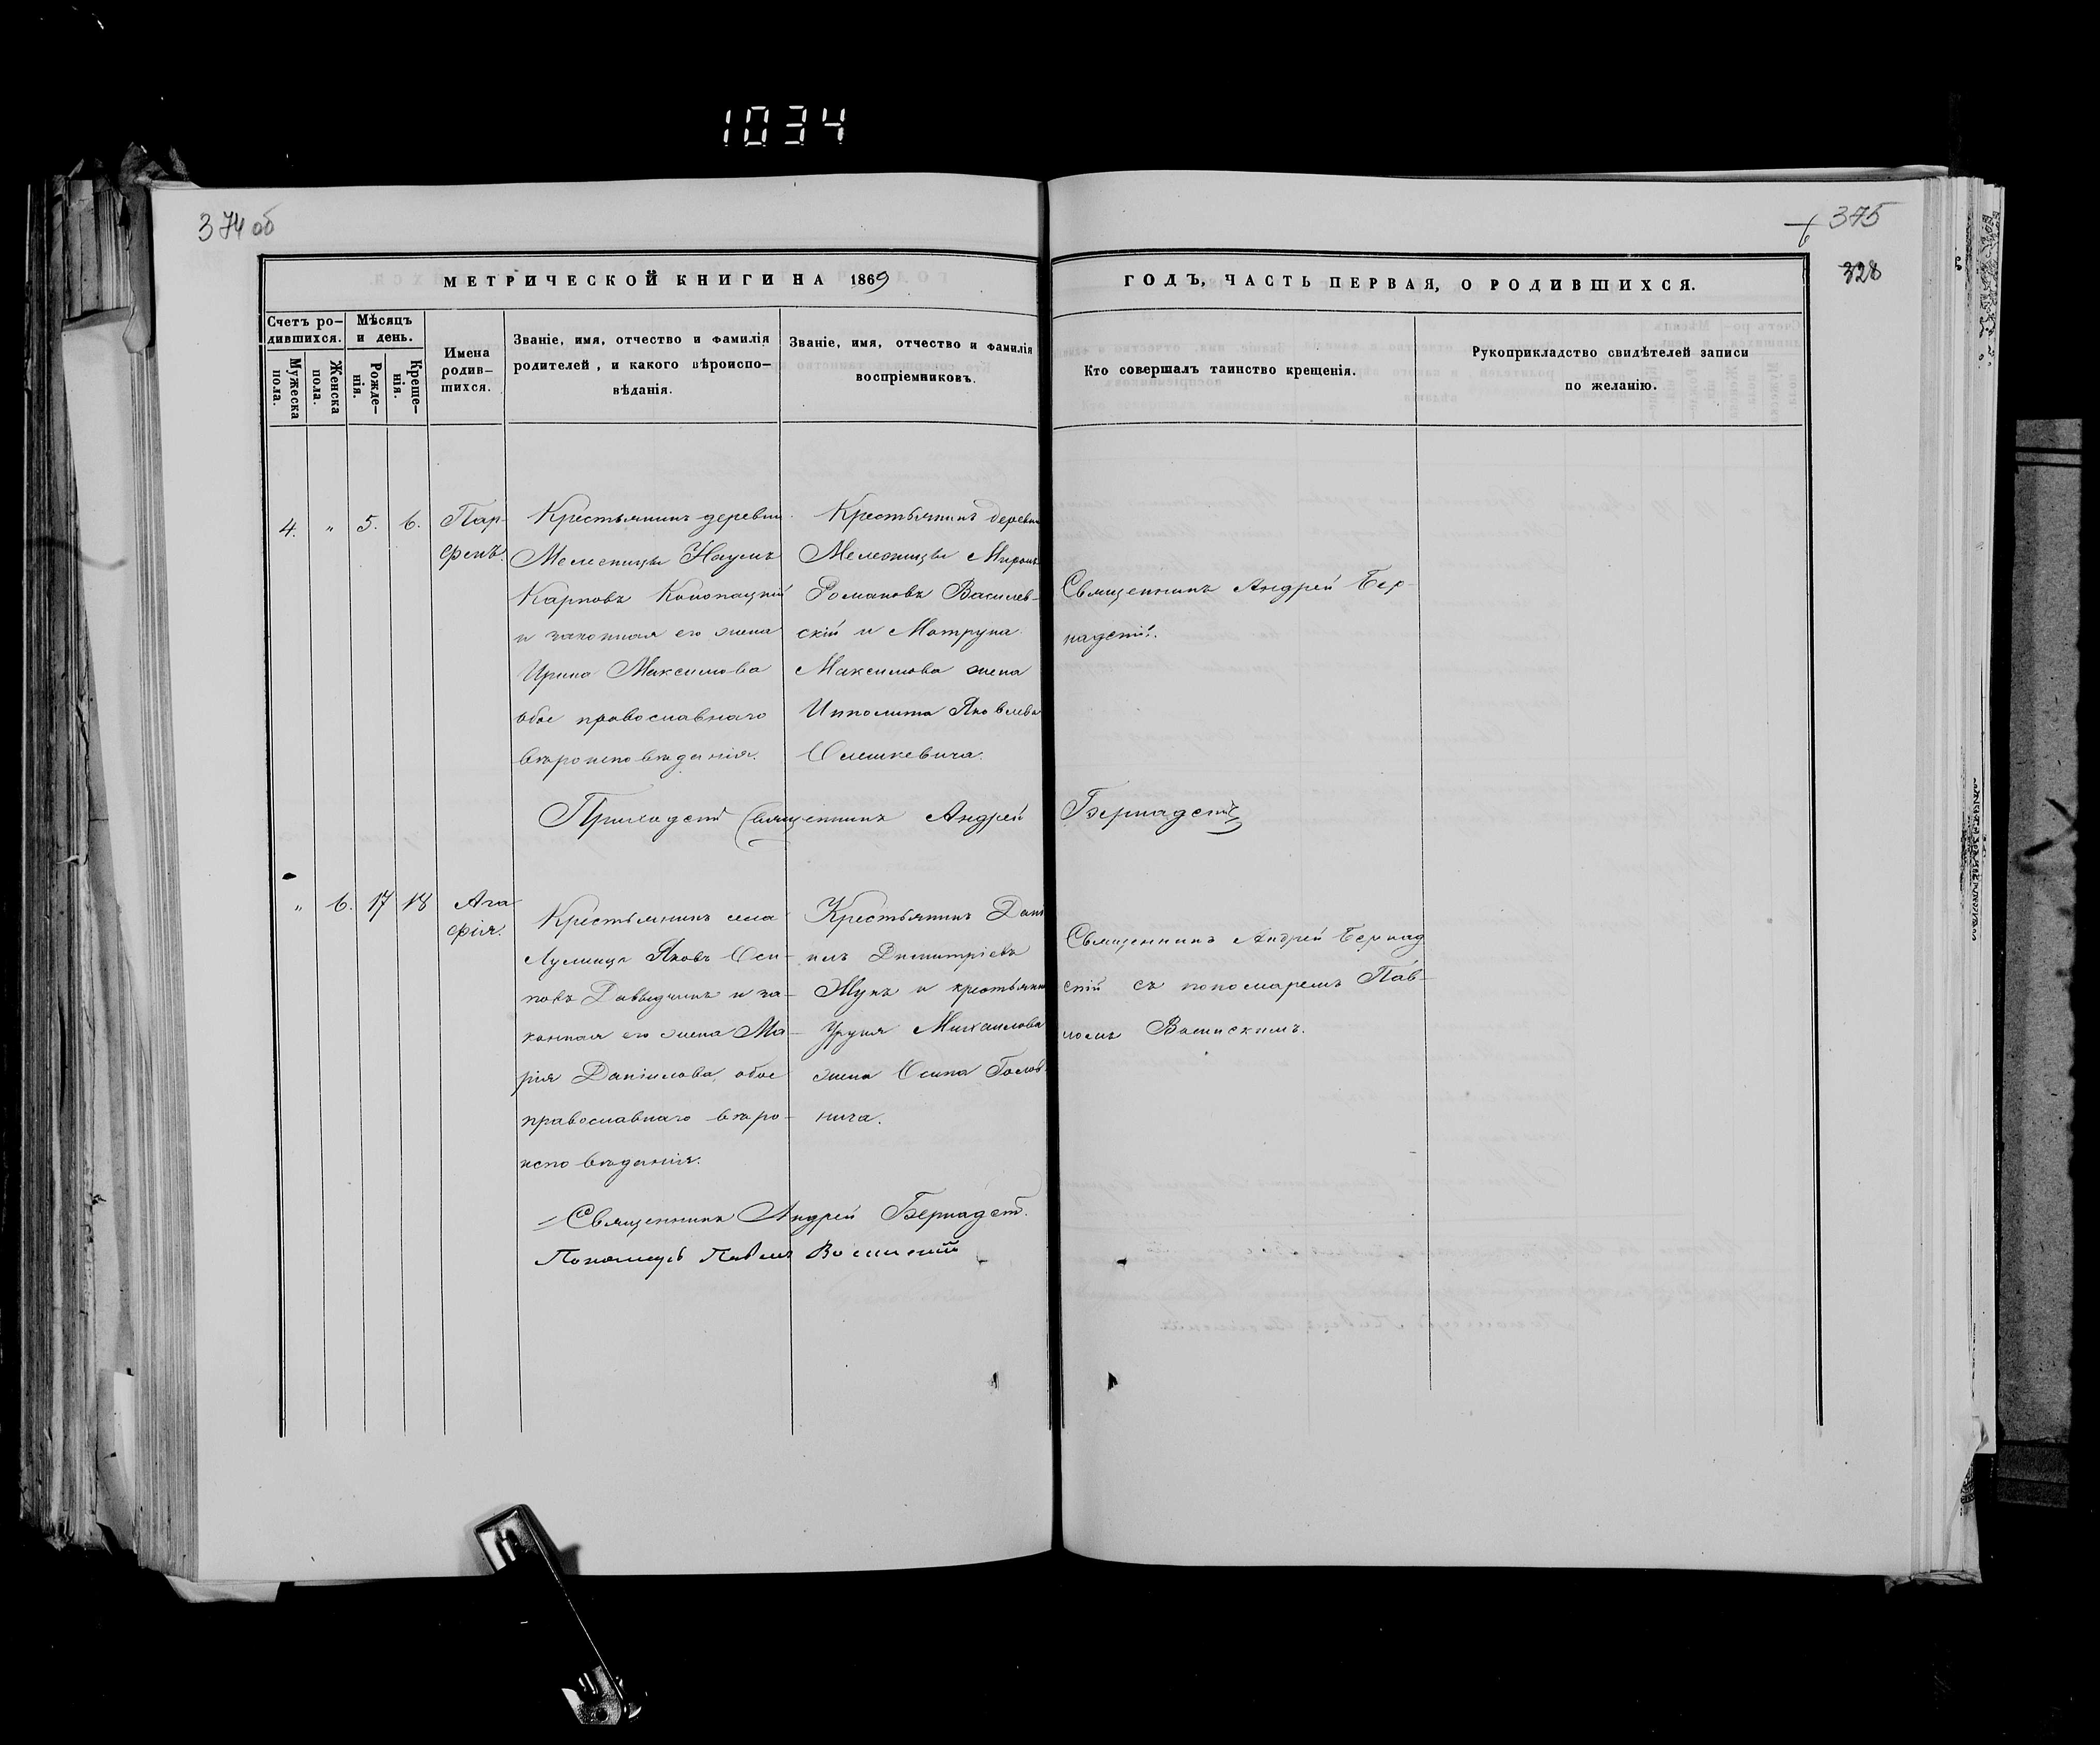 1034
374 об
375
328
МЕТРИЧЕСКОЙ КНИГИ НА 1869
ГОДЪ, ЧАСТЬ ПЕРВАЯ, О РОДИВШИХСЯ.
Счетъ ро-
дившихся.
Мужеска
пола.
Женска
пола.
Мѣсяцъ
и день.
Рожде-
нія.
Креще-
нія.
Имена
родив-
шихся.
Званіе, имя, отчество и фамилія
родителей, и какого вѣроиспо-
вѣданія.
Званіе, имя, отчество и фамилія
воспріемниковъ.
Кто совершалъ таинство крещенія.
Рукоприкладство свидѣтелей записи
по желанію.
4. " 5. 6.
Пар-
фенъ.
Крестьянинъ деревни
Мелесницы Наумъ
Карповъ Конопацкій
и законная его жена
Ирина Максимова
обое православнаго
вѣроисповѣданія.
Крестьянинъ деревни
Мелесницы Миронъ
Романовъ Василев-
скій и Матруна
Максимова жена
Ипполита Яковлева
Олешкевича.
Священникъ Андрей Бер-
надскій.
Приходскій Священникъ Андрей Бернадскій
" 6. 17 18
Ага
фія.
Крестьянинъ села
Лулинца Яковъ Оси-
повъ Давыдчикъ и за-
конная его жена Ма-
рія Даніилова, обое
православнаго вѣро-
исповѣданія.
Крестьянинъ Дані
илъ Димитріевъ
Жукъ и крестьянка
Уруня Михаилова
жена Осипа Голов-
нича.
Священникъ Андрей Бернад
скій съ пономаремъ Пав-
ломъ
Священникъ Андрей Бернадскій.
Пономарь Павелъ